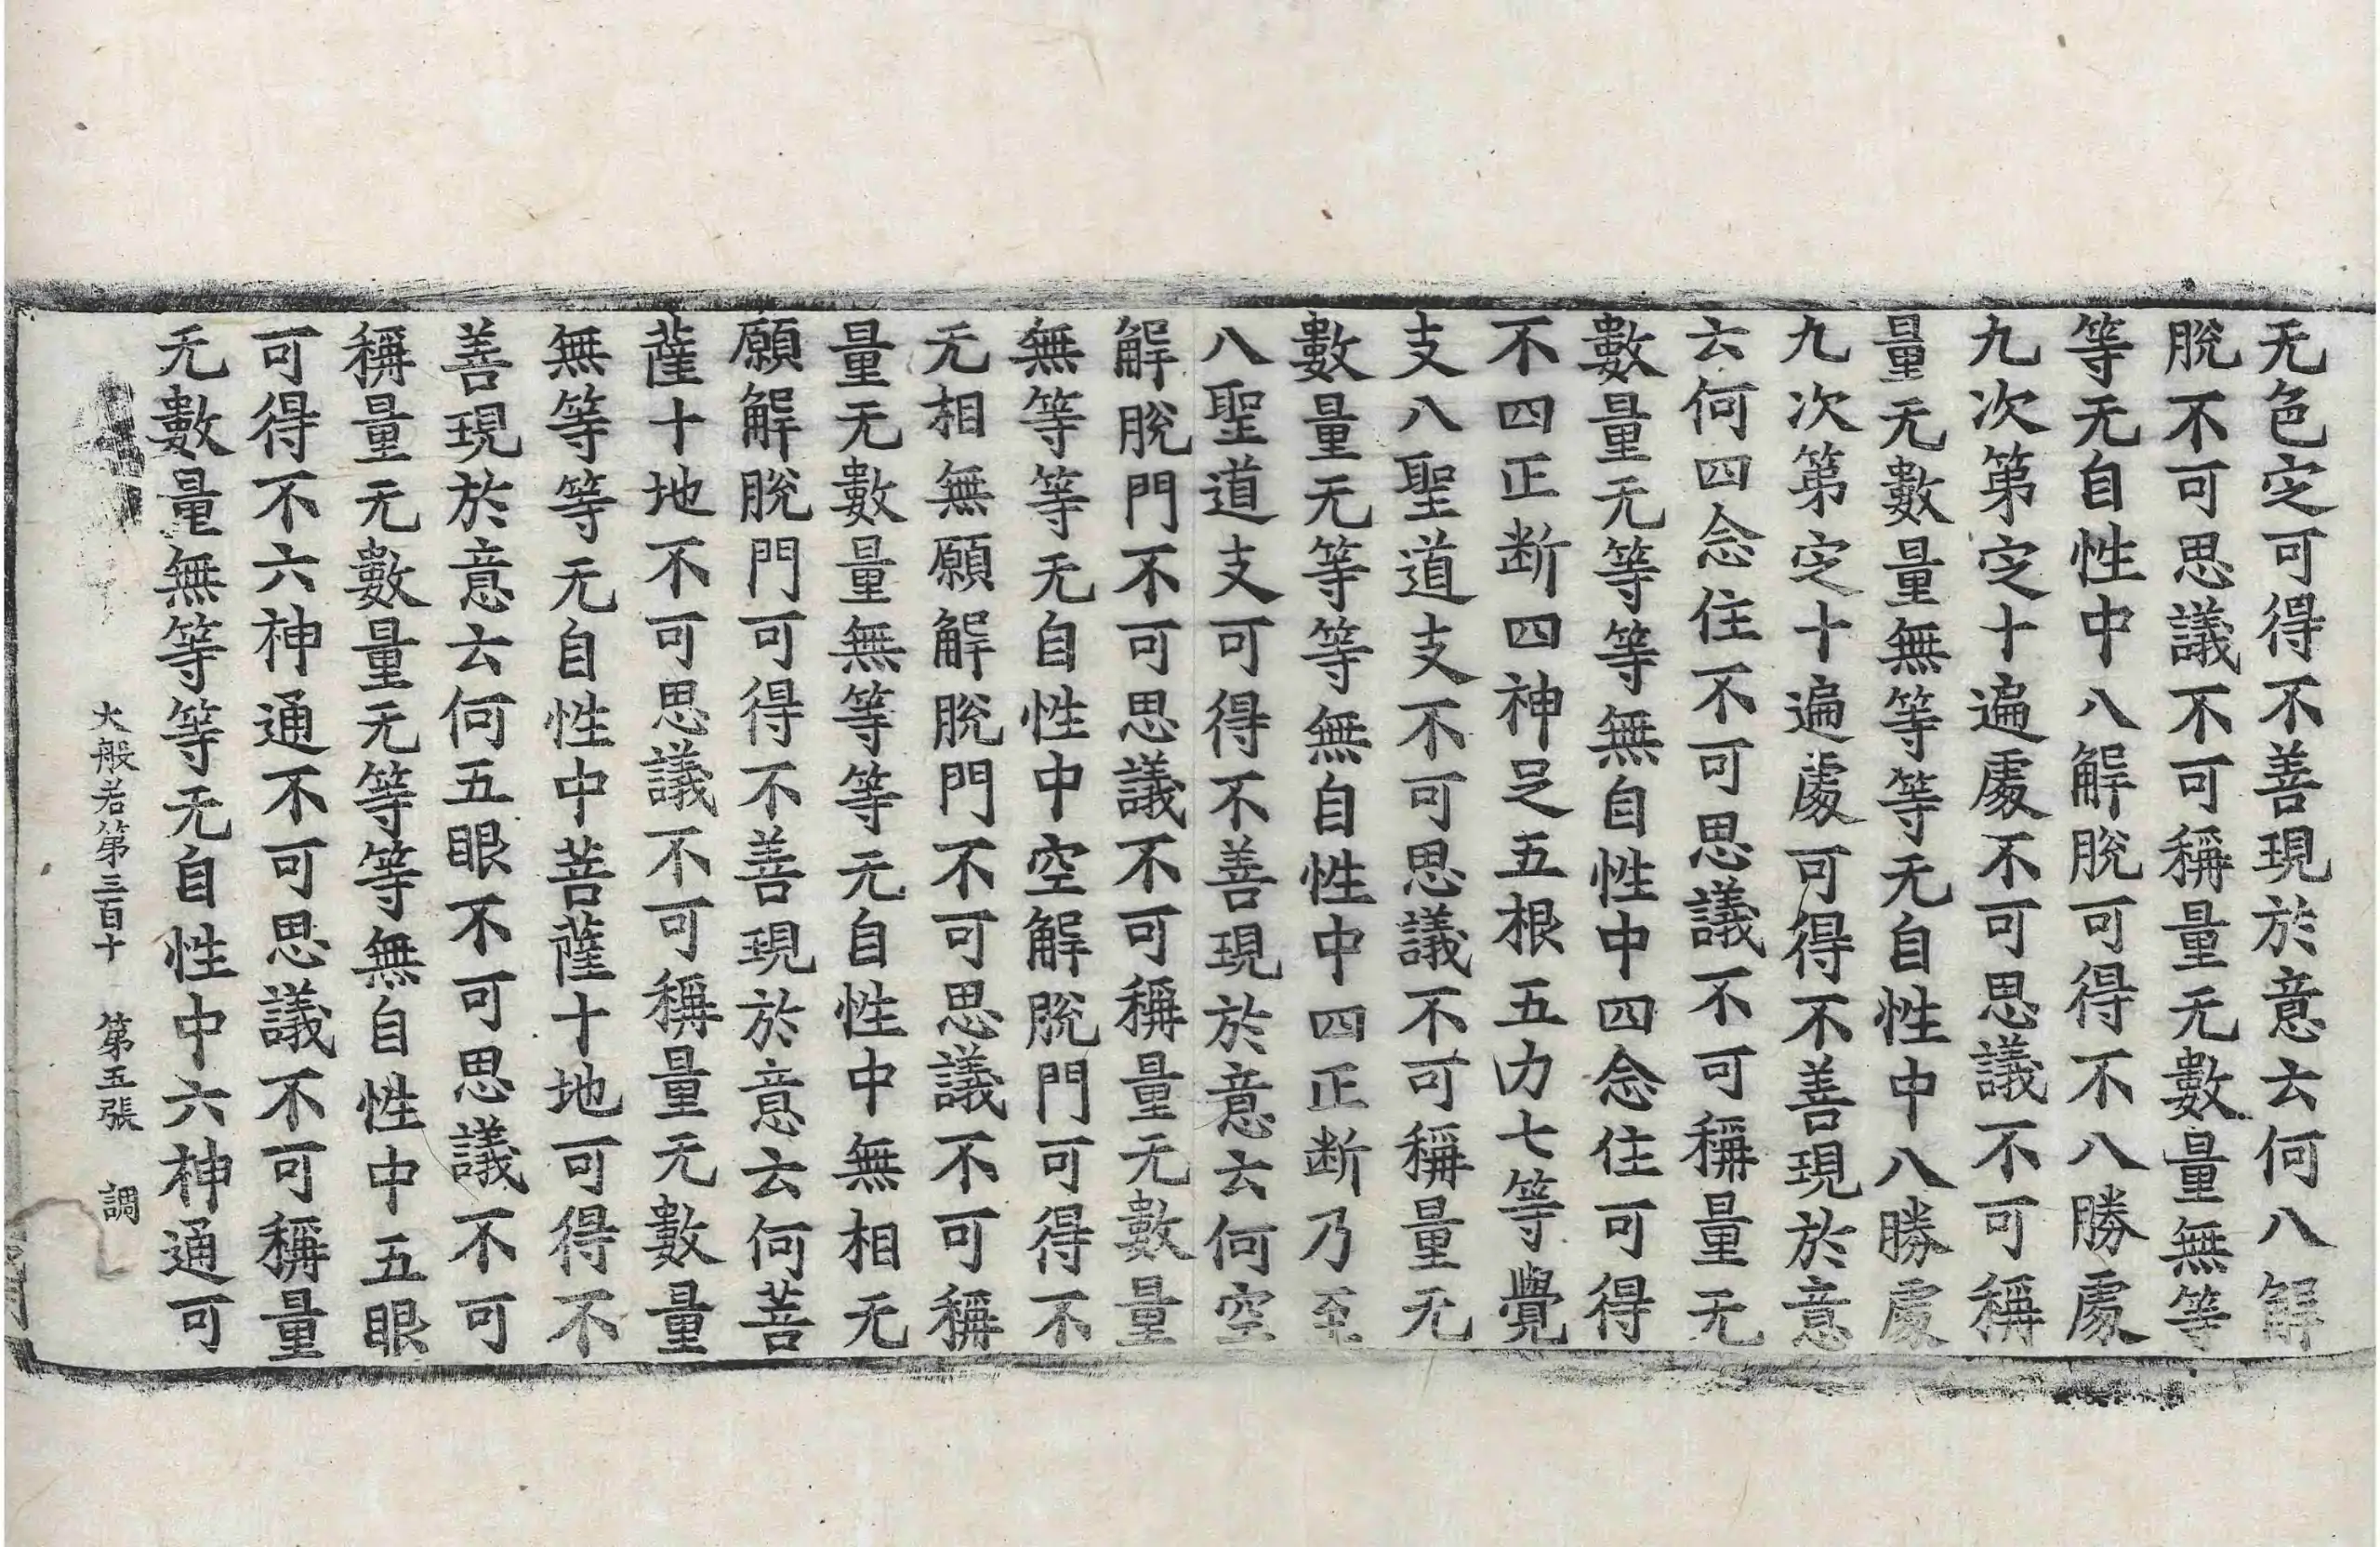 无色㝎可得不善現於意云何八解
脫不可思議不可稱量无數量無等
等无自性中八解脫可得不八勝處
九次第㝎十遍處不可思議不可稱
量无數量無等等无自性中八勝處
九次第㝎十遍處可得不善現於意
云何四念住不可思議不可稱量无
數量无等等無自性中四念住可得
不四正断四神足五根五力七等覺
支八聖道支不可思議不可稱量无
數量无等等無自性中四正断乃至
八聖道支可得不善現於意云何空
解脫門不可思議不可稱量无數量
無等等无自性中空解脫門可得不
无相無願解脫門不可思議不可稱
量无數量無等等无自性中無相无
願解脫門可得不善現於意云何菩
薩十地不可思議不可稱量无數量
無等等无自性中菩薩十地可得不
善現於意云何五眼不可思議不可
稱量无數量无等等無自性中五眼
可得不六神通不可思議不可稱量
无數量無等等无自性中六神通可
大般若第三百十 第五張 調